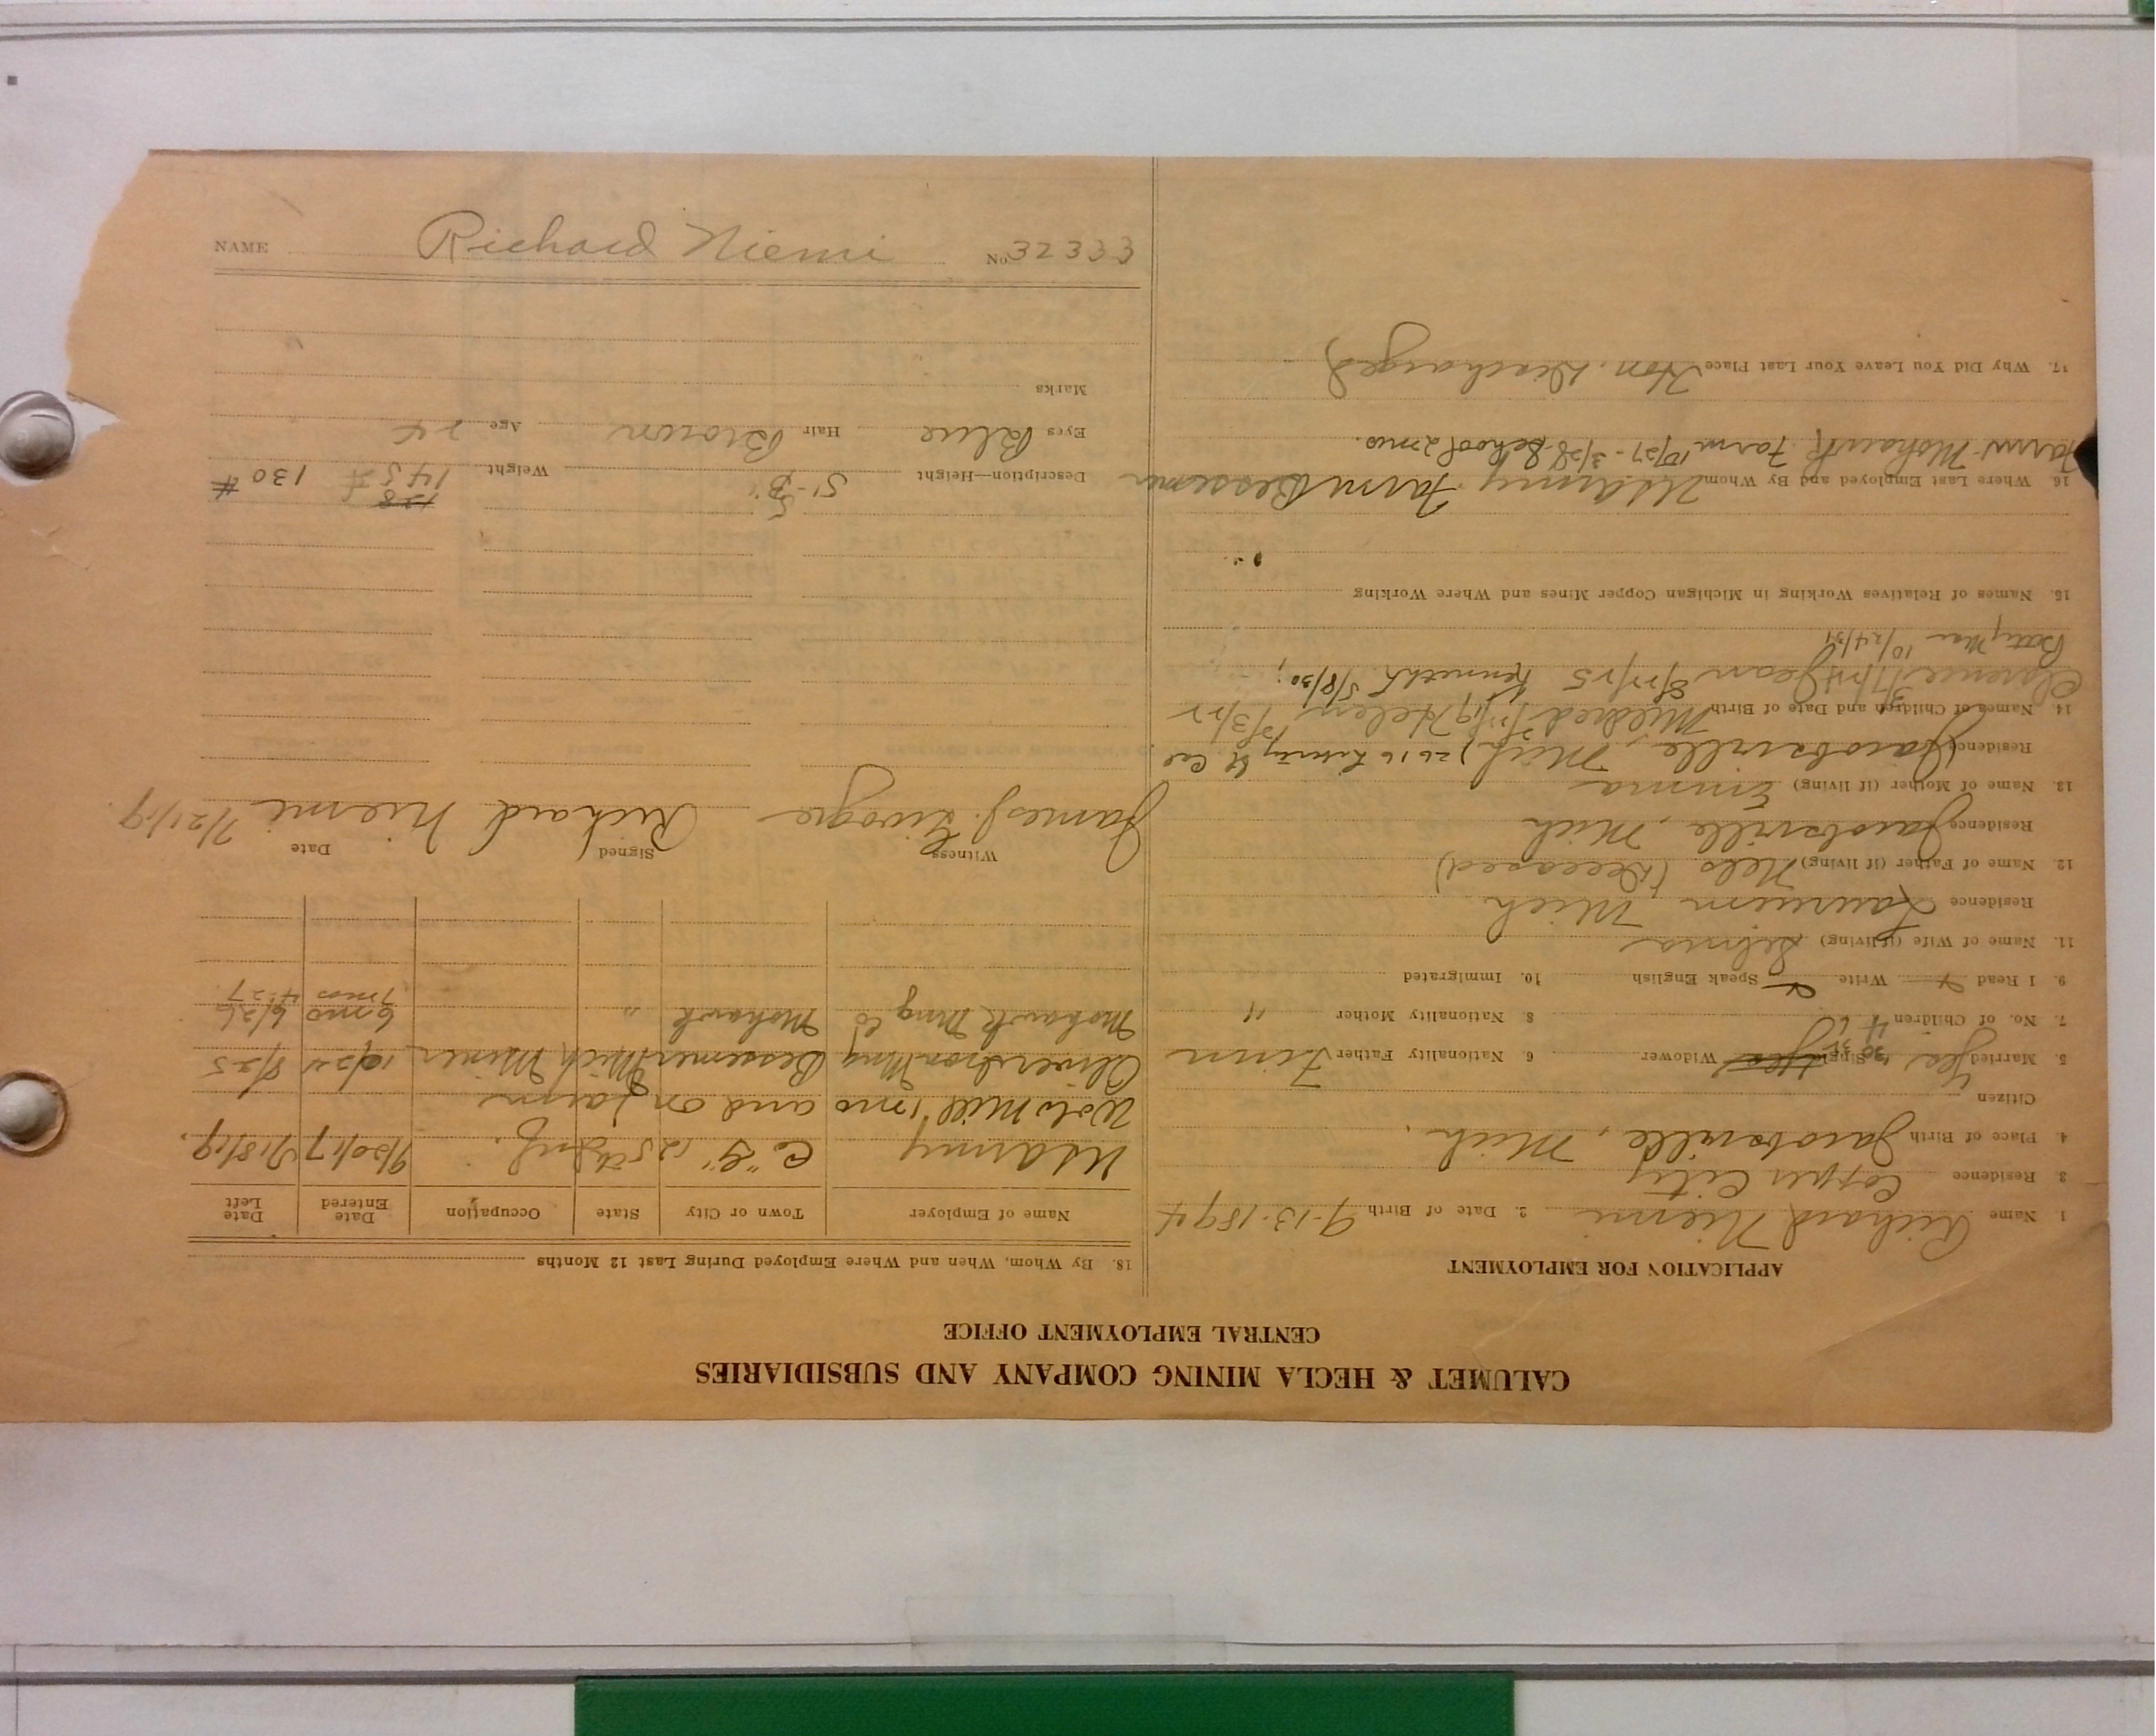 CALUMET & HECLA MINING COMPANY AND SUBSIDIARIES
CENTRAL EMPLOYMENT OFFICE
APPLICATION FOR EMPLOYMENT
1 Name Richard Niemi 2. Date of Birth 9-13-1894
3 Residence Copper City
4. Place of Birth Jacobsville, Mich.
Citizen
5. Married Yes Single Widower 6. Nationality Father Finn
7. No. of Children 4 8. Nationality Mother "
9. I Read Write Speak English 10. Immigrated
11. Name of Wife (if living) Selma
Residence Laurium, Mich.
12. Name of Father (if living) Nels (Deceased)
Residence Jacobsville, Mich
13. Name of Mother (if living) Emma
Residence (Jacobsville, Mich)
14. Names of Children and Date of Birth Mildred Helen
Clarence Jean Kenneth 5/8/30;
Betty Mae 10/24/31
15. Names of Relatives Working in Michigan Copper Mines and Where Working
16. Where Last Employed and By Whom US Army. Farm Bessemer
Farm Mohawk Farm 10/27 - 3/28 School 2 mos.
17. Why Did You Leave Your Last Place Hon. Discharged
18. By Whom, When and Where Employed During Last 12 Months
Name of Employer Town or City State Occupation Date Entered Date Left
US Army Co "G" 125th Inf. 9/30/17 7/18/19.
Mill 1 mo and on farm
Oliver Iron Mng Bessemer Mich Miner 10/24 8/25
Mohawk Mng Co Mohawk " 6 mo 6/26
7 mos 4-27
Witness Signed Date
James J. Richard Niemi 7/21/19.
Description—Height 5'- Weight 145# 130#
Eyes Blue Hair Brown Age 24
Marks
NAME Richard Niemi No 32333